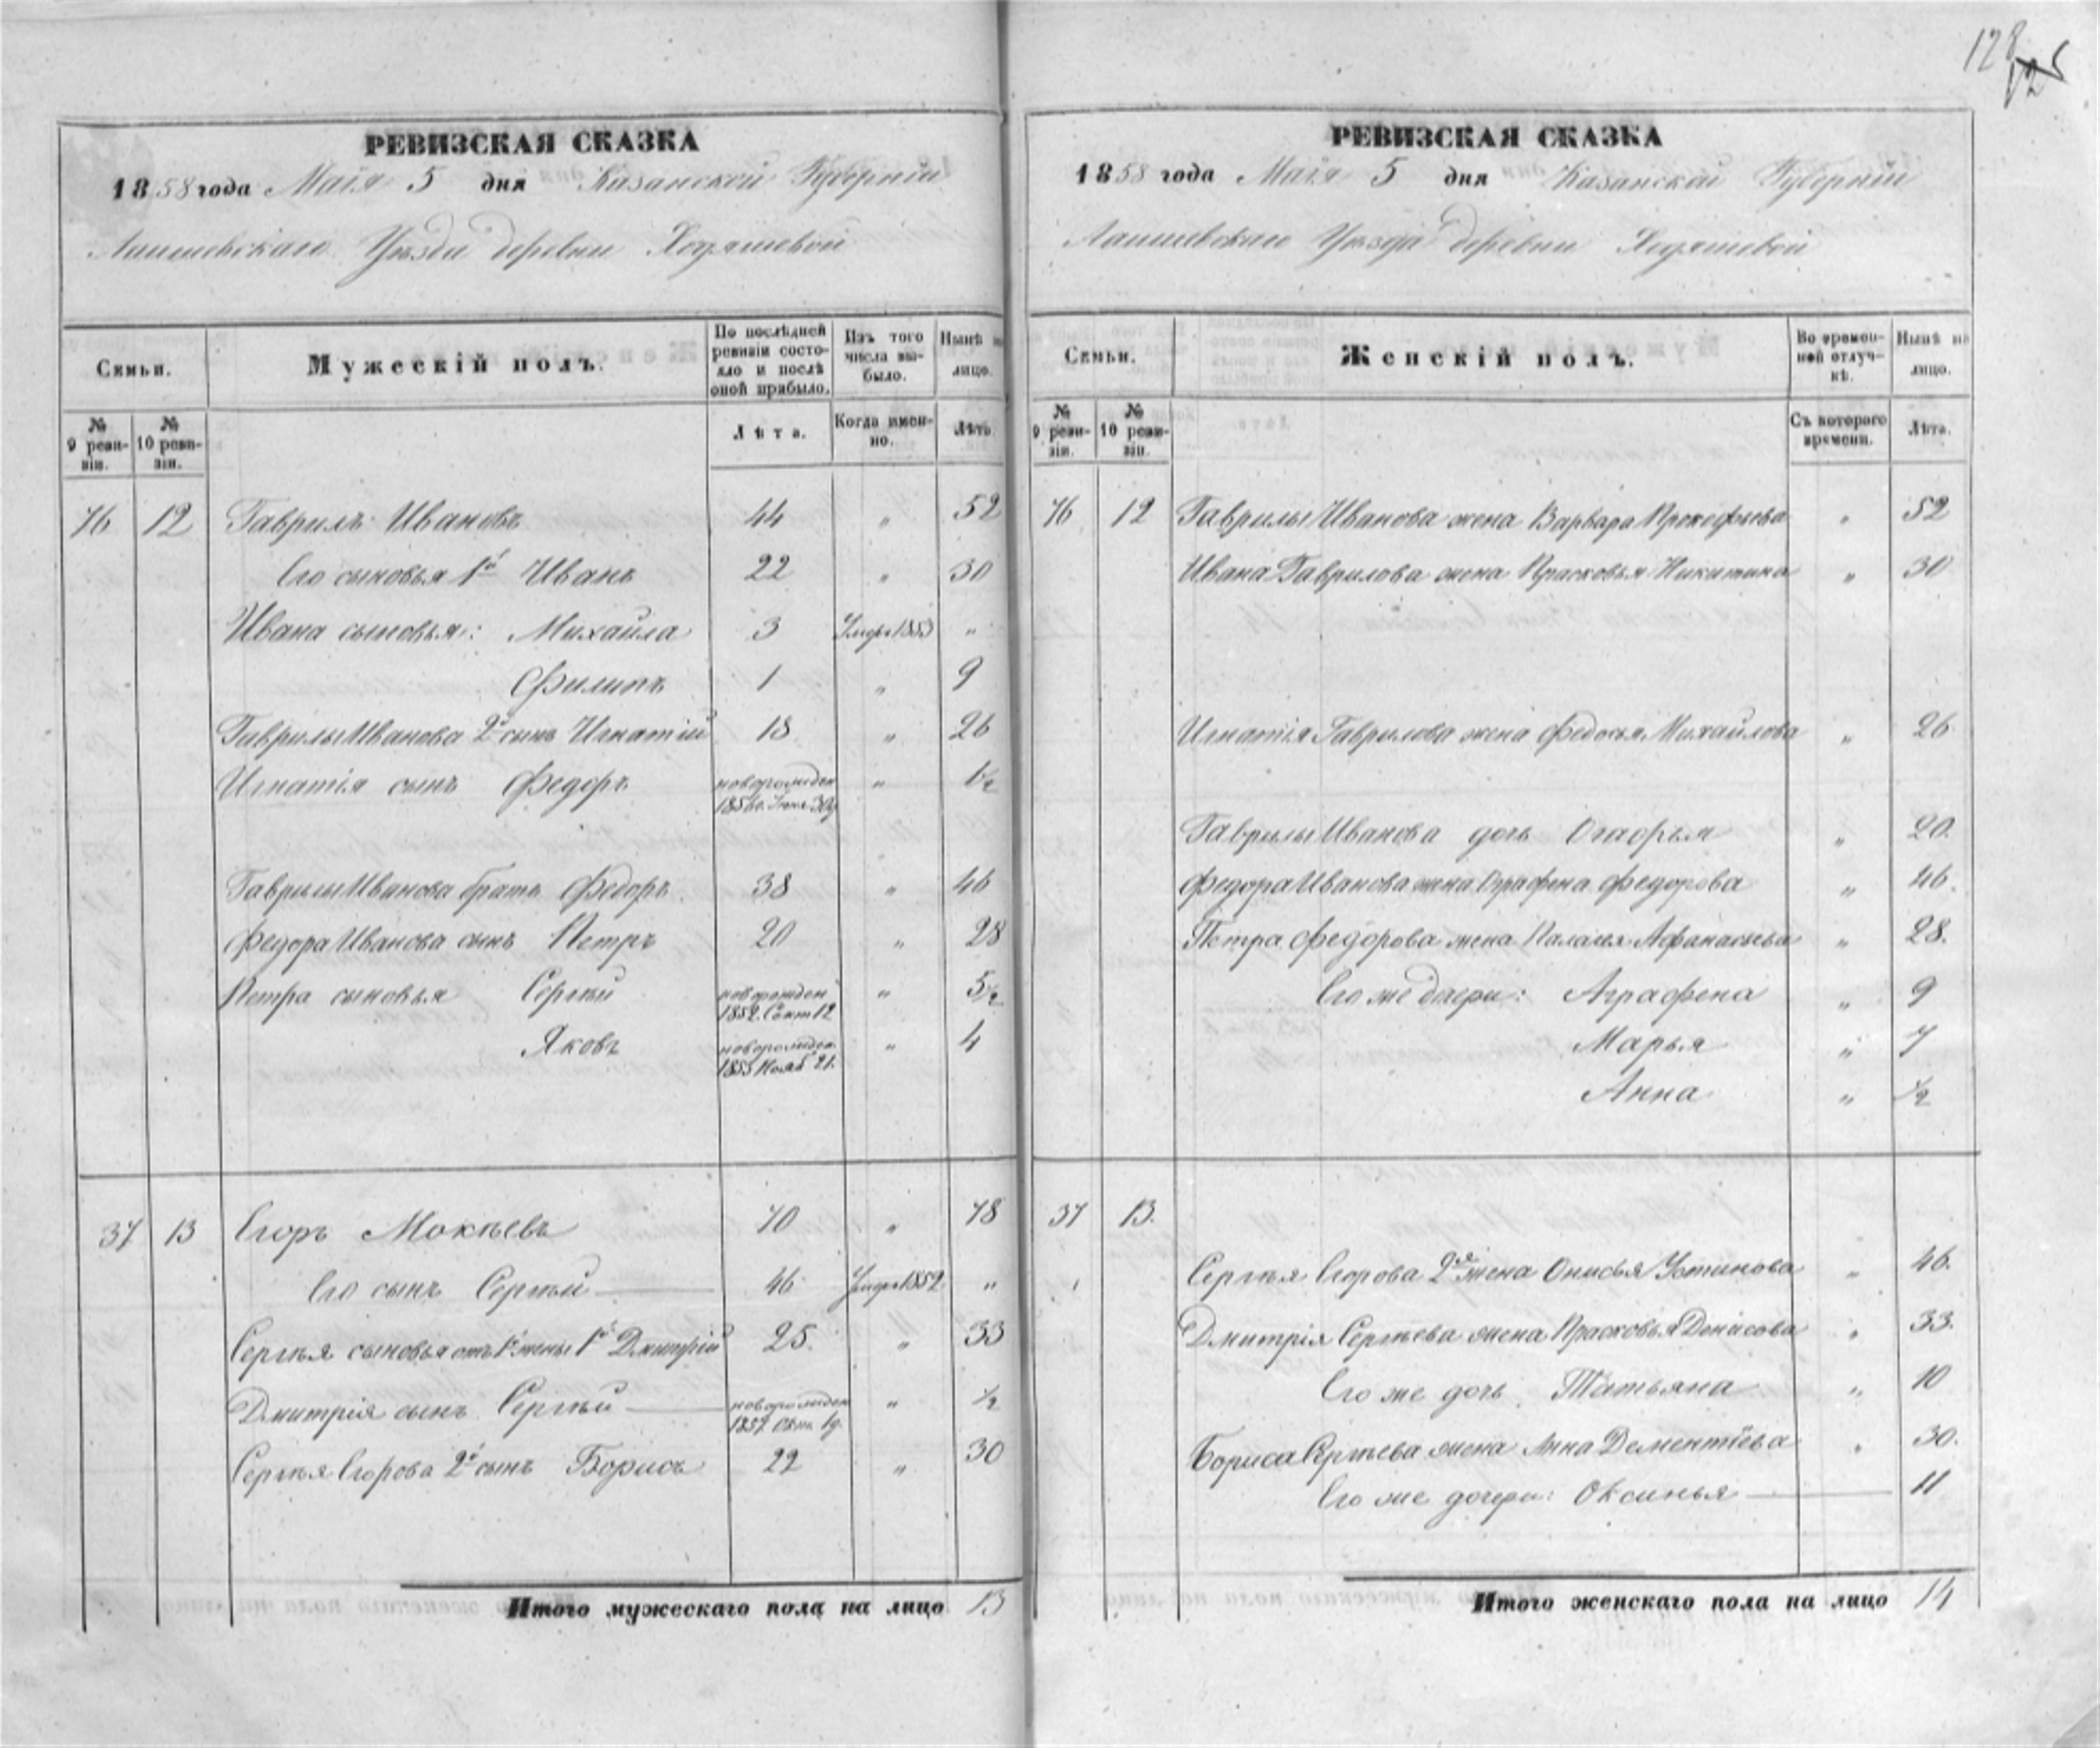 128
125
РЕВИЗСКАЯ СКАЗКА
1858 года Маія 5 дня Казанской Губерніи
Лаишевскаго Уѣзда деревни Ходяшевой
Семьи.
Мужескій полъ.
По послѣдней ревизіи состояло и послѣ оной прибыло.
Изъ того числа выбыло.
Нынѣ на лицо.
№ 9 ревизіи.
№ 10 ревизіи.
Лѣта.
Когда именно.
Лѣта.
76 12 Гаврилъ Ивановъ 44 " 52
Его сыновья 1й Иванъ 22 " 30
Ивана сыновья: Михайла 3 Умеръ 1853 "
Филипъ 1 " 9
Гаврилы Иванова 2й сынъ Игнатій 18 " 26
Игнатія сынъ Федоръ новорожден 1856 г. Іюня 30 " 1½
Гаврилы Иванова братъ Федоръ 38 " 46
Федора Иванова сынъ Петръ 20 " 28
Петра сыновья Сергѣй новорожден 1852 Сент 12 " 5½
Яковъ новорожден 1853 Нояб 21. " 4
37 13 Егоръ Мокѣевъ 70 " 78
Его сынъ Сергѣй 46 Умеръ 1852 "
Сергѣя сыновья отъ 1й жены 1й Дмитрій 25. " 33
Дмитрія сынъ Сергѣй новорожден 1857 Окт. 19. " ½
Сергѣя Егорова 2й сынъ Борисъ 22 " 30
Итого мужескаго пола на лицо 13
РЕВИЗСКАЯ СКАЗКА
1858 года Маія 5 дня Казанской Губерніи
Лаишевскаго Уѣзда деревни Ходяшевой
Семьи.
Женскій полъ.
Во временной отлучкѣ.
Нынѣ на лицо.
№ 9 ревизіи.
№ 10 ревизіи.
Съ котораго времени.
Лѣта.
76 12 Гаврилы Иванова жена Варвара Прокофьева " 52
Ивана Гаврилова жена Прасковья Никитина " 30
Игнатія Гаврилова жена Федосья Михайлова " 26
Гаврилы Иванова дочь Огафья " 20.
Федора Иванова жена Аграфена Федорова " 46.
Петра Федорова жена Палагея Афанасьева " 28.
Его же дочери: Аграфена " 9
Марья " 7
Анна " ½
37 13.
Сергѣя Егорова 2я жена Онисья Устинова " 46.
Дмитрія Сергѣева жена Прасковья Денисова " 33.
Его же дочь Татьяна " 10
Бориса Сергѣева жена Анна Дементіева " 30.
Его же дочери: Оксинья 11
Итого женскаго пола на лицо 14